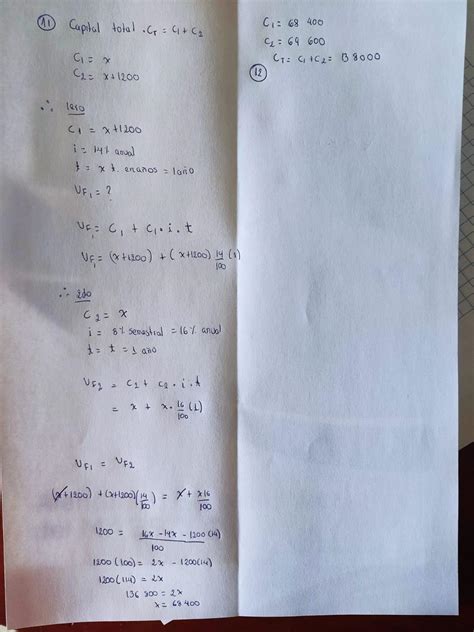 11 Capital total . CT = C1 + C2
C1 = x
C2 = x+1200
∴ 1ero
C1 = x+1200
i = 14% anual
t = x t. en años = 1 año
VF1 = ?
VF1 = C1 + C1 . i . t
VF1 = (x+1200) + (x+1200) 14/100 (1)
∴ 2do
C2 = x
i = 8% semestral = 16% anual
t = t = 1 año
VF2 = C2 + C2 . i . t
= x + x . 16/100 (1)
VF1 = VF2
(x+1200) + (x+1200)(14/100) = x + x16/100
1200 = 16x - 14x - 1200(14) / 100
1200(100) = 2x - 1200(14)
1200(114) = 2x
136 800 = 2x
x = 68 400
C1 = 68 400
C2 = 69 600
CT = C1 + C2 = 138000
12